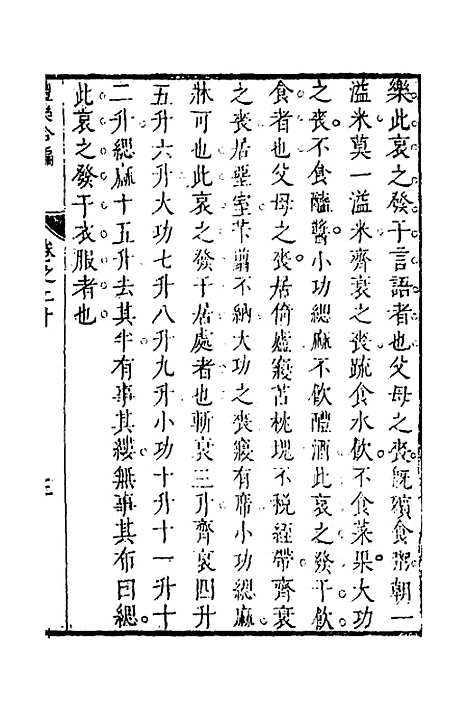 樂此哀之發于言語者也父母之喪既殯食粥朝一
溢米莫一溢米齊衰之喪䟽食水飲不食菜果大功
之喪不食醯醬小功緦麻不飲醴酒此哀之發于飲
食者也父母之喪居倚廬寢苫枕塊不稅絰帶齊衰
之喪居堊室芐翦不納大功之喪寢有席小功緦麻
牀可也此哀之發于居處者也斬衰三升齊衰四升
五升六升大功七升八升九升小功十升十一升十
二升緦麻十五升去其半有事其縷無事其布曰緦
此哀之發于衣服者也
禮樂合編
卷之二十